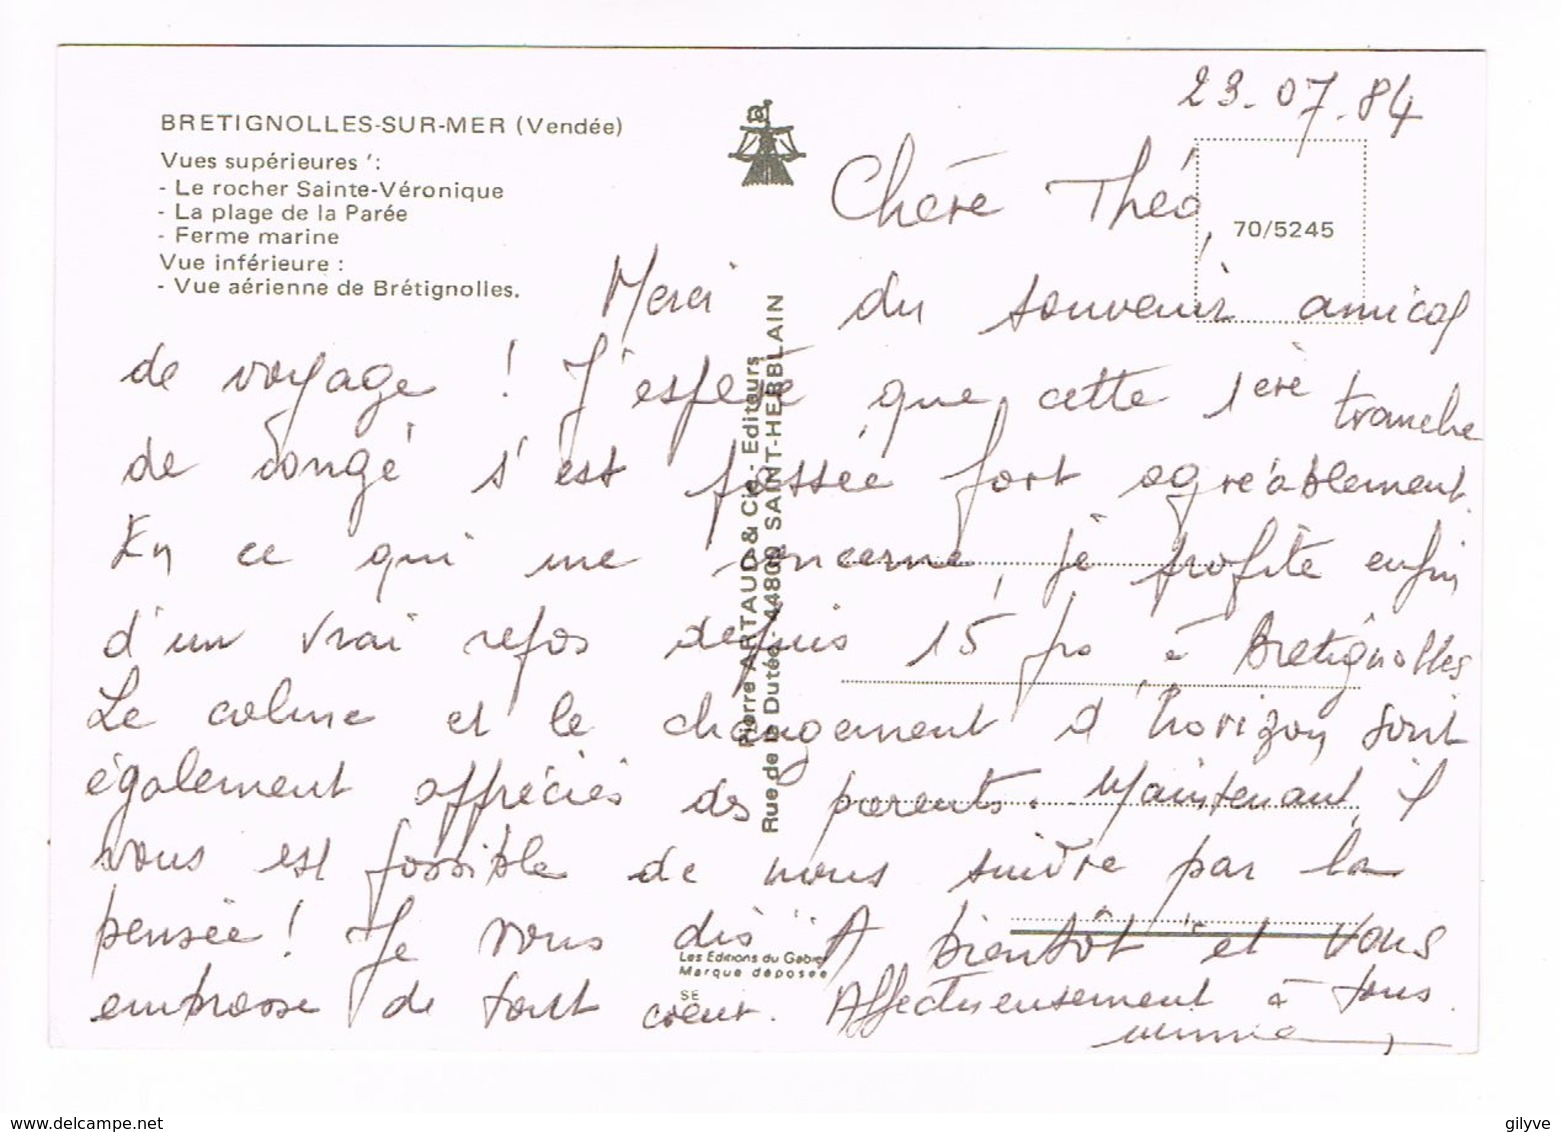 BRETIGNOLLES-SUR-MER (Vendée)
Vues supérieures ':
- Le rocher Sainte-Véronique
- La plage de la Parée
- Ferme marine
Vue inférieure :
- Vue aérienne de Brétignolles.
Pierre ARTAUD & Cie - Editeurs
Rue de la Dutée - 44800 SAINT-HERBLAIN
Les Editions du Gabier
Marque déposée
SE
70/5245
23.07.84
Chère Théo,
Merci du souvenir amical
de voyage ! J'espère que cette 1ère tranche
de congé s'est passée fort agréablement.
En ce qui me concerne, je profite enfin
d'un vrai repos depuis 15 jrs à Bretignolles
Le calme et le changement d'horizon sont
également appréciés des parents. Maintenant, il
vous est possible de nous suivre par la
pensée ! Je vous dis "A bientôt" et vous
embrasse de tout coeur. Affectueusement à tous.
gilyve